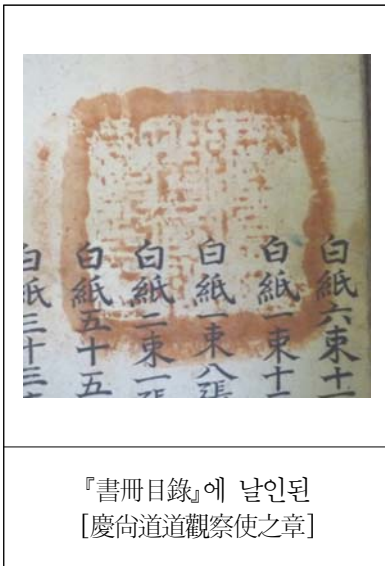 白紙六束十
白紙一束十
白紙一束八張
白紙二束一張
白紙五十五
白紙三十三
『書冊目錄』에 날인된
[慶尙道道觀察使之章]